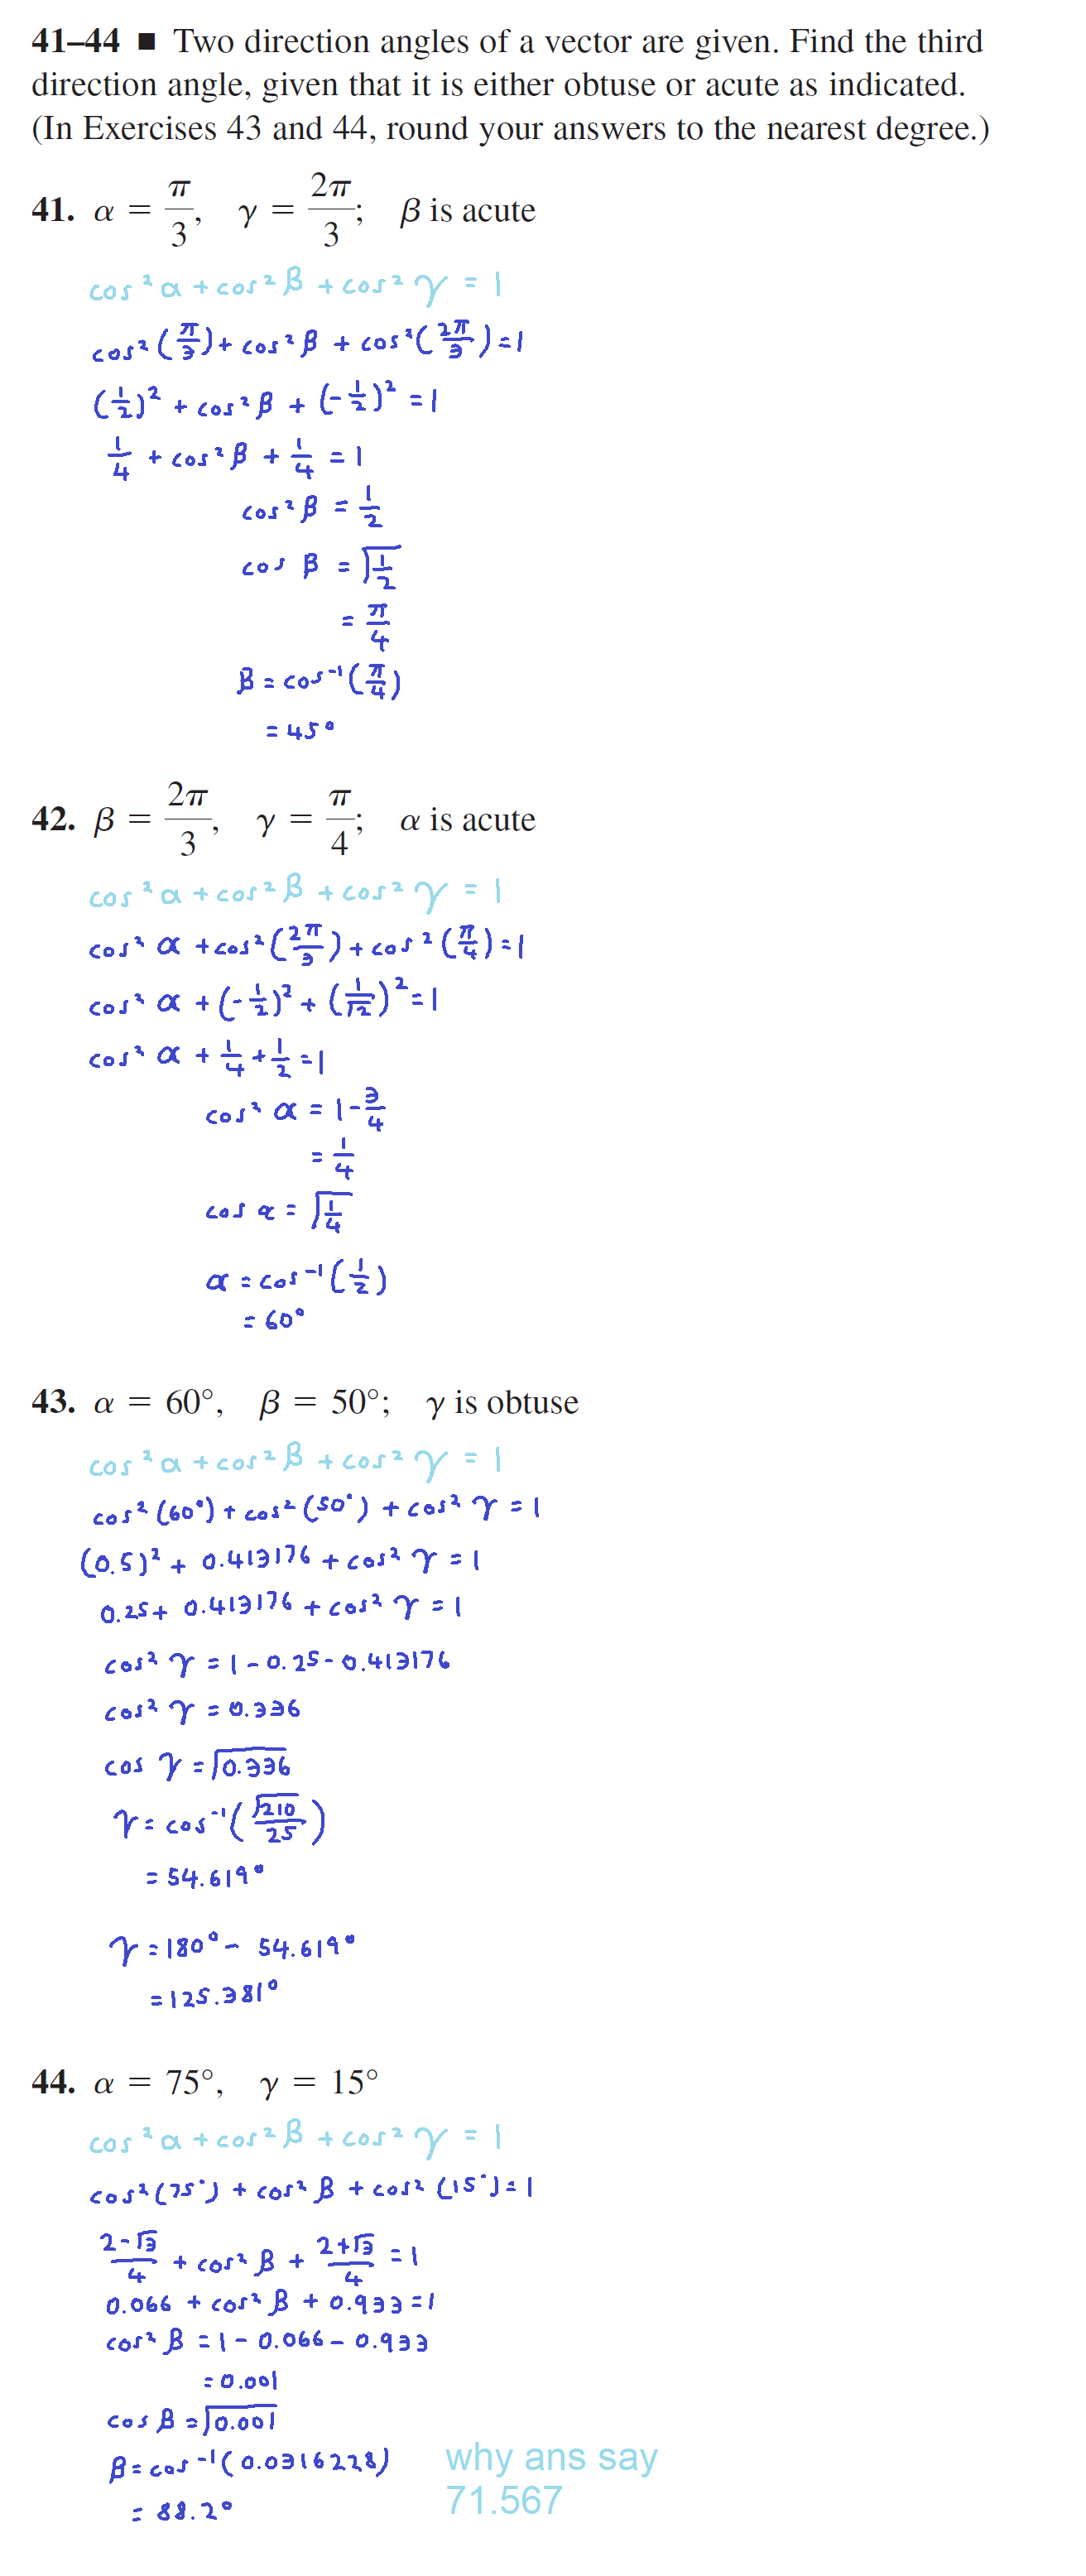 41–44 ■ Two direction angles of a vector are given. Find the third
direction angle, given that it is either obtuse or acute as indicated.
(In Exercises 43 and 44, round your answers to the nearest degree.)
41. α = π/3, γ = 2π/3; β is acute
cos²α + cos²β + cos²γ = 1
cos²(π/3) + cos²β + cos²(2π/3) = 1
(1/2)² + cos²β + (-1/2)² = 1
1/4 + cos²β + 1/4 = 1
cos²β = 1/2
cos β = √(1/2)
= π/4
β = cos⁻¹(π/4)
= 45°
42. β = 2π/3, γ = π/4; α is acute
cos²α + cos²β + cos²γ = 1
cos²α + cos²(2π/3) + cos²(π/4) = 1
cos²α + (-1/2)² + (1/√2)² = 1
cos²α + 1/4 + 1/2 = 1
cos²α = 1 - 3/4
= 1/4
cos α = √(1/4)
α = cos⁻¹(1/2)
= 60°
43. α = 60°, β = 50°; γ is obtuse
cos²α + cos²β + cos²γ = 1
cos²(60°) + cos²(50°) + cos²γ = 1
(0.5)² + 0.413176 + cos²γ = 1
0.25 + 0.413176 + cos²γ = 1
cos²γ = 1 - 0.25 - 0.413176
cos²γ = 0.336
cos γ = √0.336
γ = cos⁻¹(√210/25)
= 54.619°
γ = 180° - 54.619°
= 125.381°
44. α = 75°, γ = 15°
cos²α + cos²β + cos²γ = 1
cos²(75°) + cos²β + cos²(15°) = 1
(2-√3)/4 + cos²β + (2+√3)/4 = 1
0.066 + cos²β + 0.933 = 1
cos²β = 1 - 0.066 - 0.933
= 0.001
cos β = √0.001
β = cos⁻¹(0.0316228)
= 88.2°
why ans say
71.567